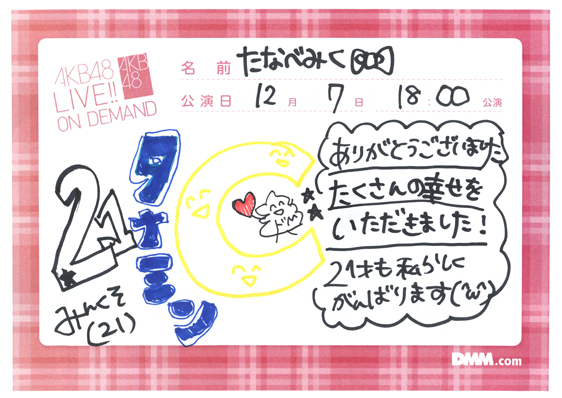 AKB48
LIVE!!
ON DEMAND
AKB
48
名前 たなべみく
公演日 12月 7日 18:00 公演
21
タナミン
C
みくそ
(21)
ありがとうございました
たくさんの幸せを
いただきました!
21才も私らしく
がんばります
DMM.com